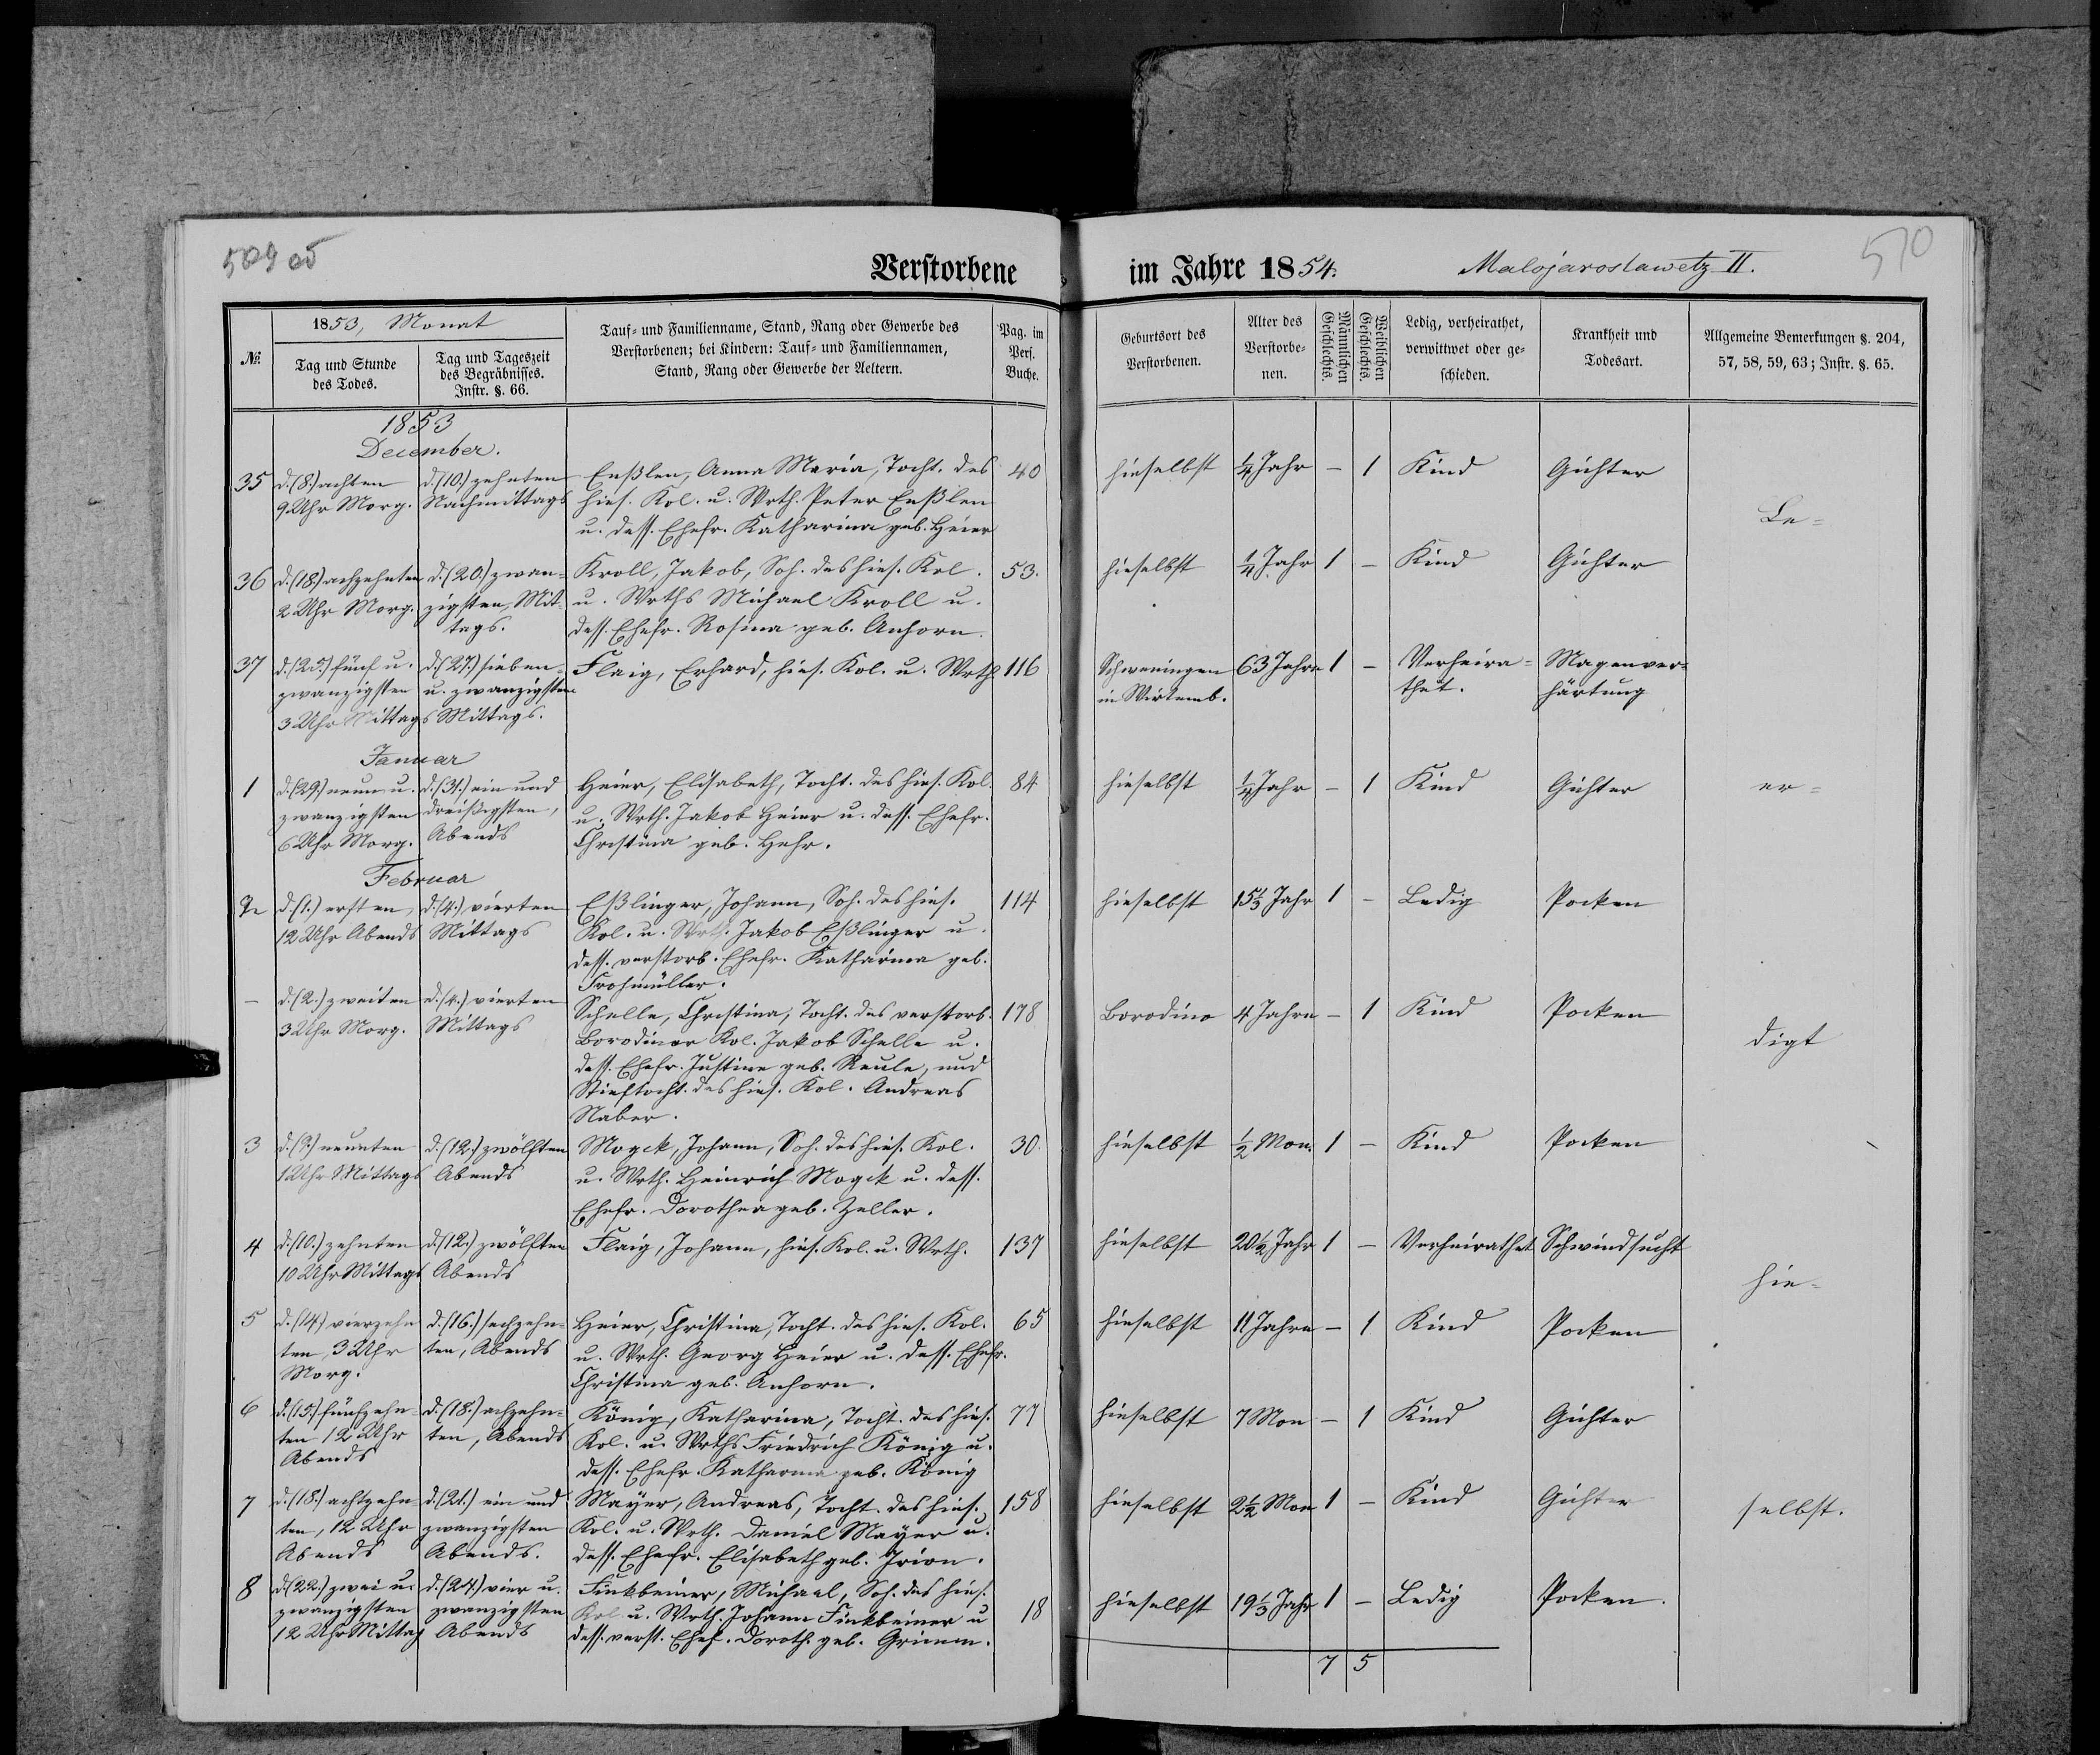 509 об
Verstorbene
im Jahre 1854.
Malojaroslawetz II.
570
№.
1853, Monat
Tag und Stunde
des Todes.
Tag und Tageszeit
des Begräbnisses.
Instr. §. 66.
Tauf- und Familienname, Stand, Rang oder Gewerbe des
Verstorbenen; bei Kindern: Tauf- und Familiennamen,
Stand, Rang oder Gewerbe der Aeltern.
Pag. im
Pers.
Buche.
Geburtsort des
Verstorbenen.
Alter des
Verstorbe-
nen.
Männlichen
Geschlechts.
Weiblichen
Geschlechts.
Ledig, verheirathet,
verwittwet oder ge-
schieden.
Krankheit und
Todesart.
Allgemeine Bemerkungen §. 204,
57, 58, 59, 63; Instr. §. 65.
1853
December.
35 d. (8.) achten d. (10.) zehnten Enßlen, Anna Maria, Tocht. des 40 hieselbst 1/4 Jahr – 1 Kind Gichter
9 Uhr Morg. Nachmittags hies. Kol. u. Wrth. Peter Enßlen
u. dess. Ehefr. Katharina geb. Heier
Be-
36 d. (18.) achzehnten d. (20.) zwan- Kroll, Jakob, Soh. des hies. Kol. 53. hieselbst 1/4 Jahr 1 – Kind Gichter
2 Uhr Morg. zigsten, Mit- u. Wrths Michael Kroll u.
tags. dess. Ehefr. Rosina geb. Anhorn.
37 d. (25.) fünf u. d. (27.) sieben- Flaig, Erhard, hies. Kol. u. Wrth. 116 Schweningen 63 Jahre 1 – Verheira- Magenver-
zwanzigsten u. zwanzigsten in Wirtemb. thet. härtung
3 Uhr Mittags Mittags.
Januar
1 d. (29.) neun u. d. (31.) ein und Heier, Elisabeth, Tocht. des hies. Kol. 84 hieselbst 1/4 Jahr – 1 Kind Gichter er-
zwanzigsten dreißigsten, u. Wrth. Jakob Heier u. dess. Ehefr.
6 Uhr Morg. Abends Christina geb. Hehr.
Februar
2 d. (1.) ersten, d. (4.) vierten Eßlinger, Johann, Soh. des hies. 114 hieselbst 15 1/3 Jahr 1 – Ledig Pocken
12 Uhr Abends Mittags Kol. u. Wrth. Jakob Eßlinger u.
dess. verstorb. Ehefr. Katharina geb.
Frohmüller.
– d. (2.) zweiten d. (4.) vierten Schelle, Christina, Tocht. des verstorb. 178 Borodino 4 Jahre – 1 Kind Pocken
3 Uhr Morg. Mittags Borodinor Kol. Jakob Schelle u.
digt
dess. Ehefr. Justine geb. Reule, und
Stieftocht. des hies. Kol. Andreas
Naber.
3 d. (9.) neunten d. (12.) zwölften Mogck, Johann, Soh. des hies. Kol. 30. hieselbst 1/2 Mon. 1 – Kind Pocken
1 Uhr Mittags Abends u. Wrth. Heinrich Mogck u. dess.
Ehefr. Dorothea geb. Zeller.
4 d. (10.) zehnten d. (12.) zwölften Flaig, Johann, hies. Kol. u. Wrth. 137 hieselbst 20 1/2 Jahr 1 – Verheirathet Schwindsucht
10 Uhr Mittags Abends
hie-
5 d. (14.) vierzehn- d. (16.) sechzehn- Heier, Christina, Tocht. des hies. Kol. 65 hieselbst 11 Jahre – 1 Kind Pocken
ten, 3 Uhr ten, Abends u. Wrth. Georg Heier u. dess. Ehefr.
Morg. Christina geb. Anhorn.
6 d. (15.) fünfzehn- d. (18.) achzehn- König, Katharina, Tocht. des hies. 77 hieselbst 7 Mon – 1 Kind Gichter
ten 12 Uhr ten, Abends Kol. u. Wrths Friedrich König u.
Abends dess. Ehefr. Katharina geb. König
7 d. (18.) achtzehn- d. (21.) ein und Mayer, Andreas, Tocht. des hies. 158 hieselbst 2 1/2 Mon 1 – Kind Gichter selbst.
ten, 12 Uhr zwanzigsten Kol. u. Wrth. Daniel Mayer u.
Abends Abends. dess. Ehefr. Elisabeth geb. Irion.
8 d. (22.) zwei u. d. (24.) vier u. Finkbeiner, Michael, Soh. des hies. 18 hieselbst 19 1/3 Jahr 1 – Ledig Pocken.
zwanzigsten zwanzigsten Kol. u. Wrth. Johann Finkbeiner u
12 Uhr Mittag Abends dess. verst. Ehef. Doroth. geb. Grimm.
7 5